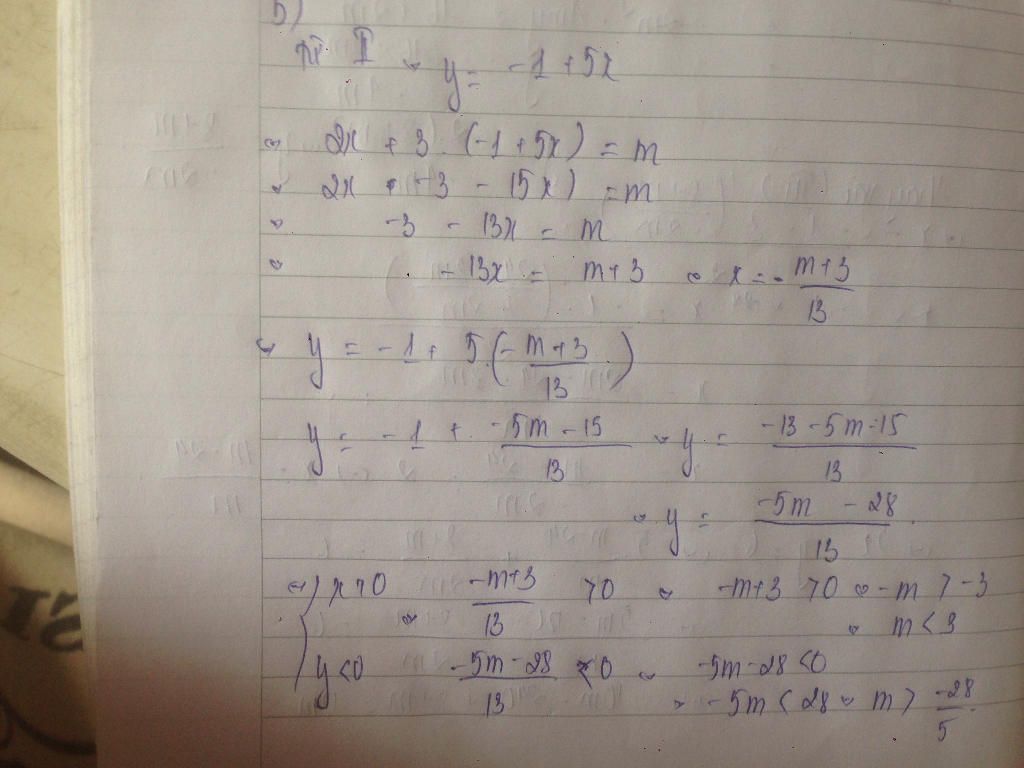 5)
từ I ⇔ y = -1 + 5x
⇔ 2x + 3 . (-1 + 5x) = m
⇔ 2x + -3 - 15x) = m
⇔ -3 - 13x = m
⇔ - 13x = m + 3 ⇔ x = - \frac{m+3}{13}
⇔ y = -1 + 5. (- \frac{m+3}{13})
y = -1 + \frac{-5m - 15}{13} ⇔ y = \frac{-13 - 5m - 15}{13}
⇔ y = \frac{-5m - 28}{13}
⇔ { x > 0 ⇔ \frac{-m+3}{13} > 0 ⇔ -m+3 > 0 ⇔ -m > -3
⇔ m < 3
y < 0 \frac{-5m - 28}{13} < 0 ⇔ -5m - 28 < 0
⇔ -5m < 28 ⇔ m > \frac{-28}{5}